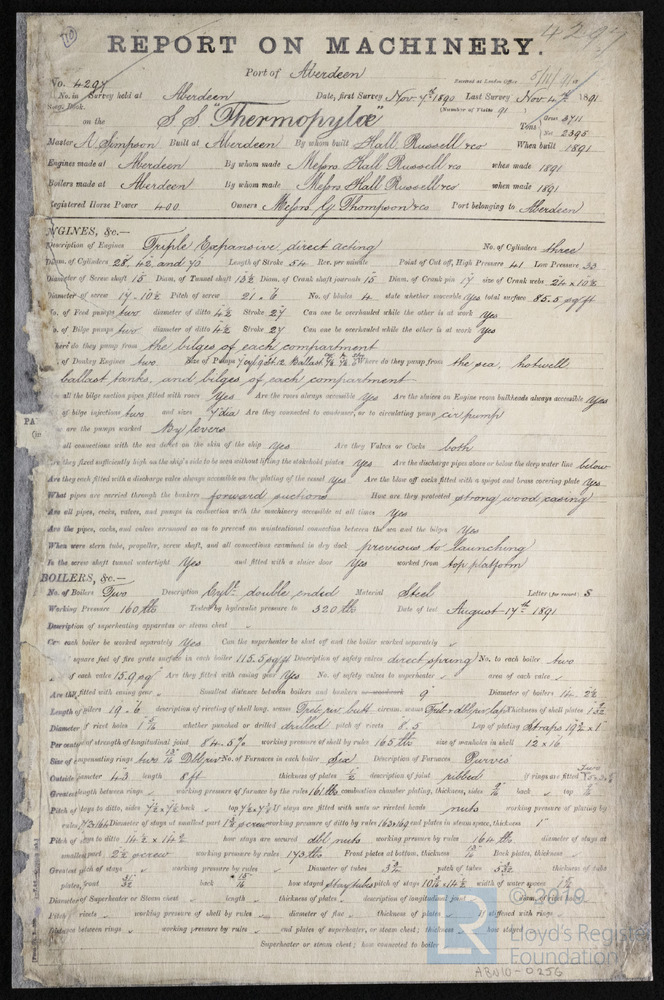 (10)
4297
REPORT ON MACHINERY.
Port of Aberdeen
Received at London Office 5/11/91
No. 4297
No. in Survey held at Aberdeen Date, first Survey Nov. 7th 1890 Last Survey Nov 4th 1891
Reg. Book. (Number of Visits 91
on the S.S. "Thermopylæ" Tons Gross 3711 Net 2395
Master A Simpson Built at Aberdeen By whom built Hall Russell & Co When built 1891
Engines made at Aberdeen By whom made Messrs Hall Russell & Co when made 1891
Boilers made at Aberdeen By whom made Messrs Hall Russell & Co when made 1891
Registered Horse Power 400 Owners Messrs G. Thompson & Co Port belonging to Aberdeen
NGINES, &c.—
Description of Engines Triple Expansive direct acting No. of Cylinders three
Diam. of Cylinders 28, 42 and 70 Length of Stroke 54 Rev. per minute Point of Cut off, High Pressure 41 Low Pressure 33
Diameter of Screw shaft 15 Diam. of Tunnel shaft 13½ Diam. of Crank shaft journals 15 Diam. of Crank pin 17 size of Crank webs 24 x 10½
Diameter of screw 17-10½ Pitch of screw 21.6 No. of blades 4 state whether moveable Yes total surface 85.5 sq ft
No. of Feed pumps two diameter of ditto 4½ Stroke 27 Can one be overhauled while the other is at work Yes
No. of Bilge pumps two diameter of ditto 4½ Stroke 27 Can one be overhauled while the other is at work Yes
Where do they pump from the bilges of each compartment
of Donkey Engines two Size of Pumps Where do they pump from the sea, hotwell
ballast tanks, and bilges of each compartment
all the bilge suction pipes fitted with roses Yes Are the roses always accessible Yes Are the sluices on Engine room bulkheads always accessible Yes
of bilge injections two and sizes 7 dia Are they connected to condenser, or to circulating pump cir pump
are the pumps worked By levers
all connections with the sea direct on the skin of the ship Yes Are they Valves or Cocks both
Are they fixed sufficiently high on the ship's side to be seen without lifting the stokehold plates Yes Are the discharge pipes above or below the deep water line below
Are they each fitted with a discharge valve always accessible on the plating of the vessel Yes Are the blow off cocks fitted with a spigot and brass covering plate Yes
What pipes are carried through the bunkers forward suctions How are they protected strong wood casing
Are all pipes, cocks, valves, and pumps in connection with the machinery accessible at all times Yes
Are the pipes, cocks, and valves arranged so as to prevent an unintentional connection between the sea and the bilges Yes
When were stern tube, propeller, screw shaft, and all connections examined in dry dock previous to launching
Is the screw shaft tunnel watertight Yes and fitted with a sluice door Yes worked from top platform
BOILERS, &c.—
No. of Boilers Two Description Cyl. double ended Material Steel Letter (for record) S
Working Pressure 160 lbs Tested by hydraulic pressure to 320 lbs Date of test August 17th 1891
Description of superheating apparatus or steam chest
Can each boiler be worked separately Yes Can the superheater be shut off and the boiler worked separately
square feet of fire grate surface in each boiler 115.5 sq ft Description of safety valves direct spring No. to each boiler two
of each valve 15.9 sq Are they fitted with easing gear Yes No. of safety valves to superheater area of each valve
Are they fitted with easing gear Smallest distance between boilers and bunkers 9 Diameter of boilers 14.2½
Length of boilers 19.6 description of riveting of shell long. seams Treb. riv. butt circum. seams Treb & dbl riv lap Thickness of shell plates
Diameter of rivet holes whether punched or drilled drilled pitch of rivets 8.5 Lap of plating straps
Per centage of strength of longitudinal joint 84.5% working pressure of shell by rules 165 lbs size of manholes in shell 12 x 16
Size of compensating rings Dbl riv No. of Furnaces in each boiler Six Description of Furnaces Purves
Outside diameter 43 length 8 ft thickness of plates description of joint ribbed if rings are fitted
Greatest length between rings working pressure of furnace by the rules 161 lbs combustion chamber plating, thickness, sides back top
Pitch of stays to ditto, sides 7½ x 7½ back top If stays are fitted with nuts or riveted heads nuts working pressure of plating by
rules Diameter of stays at smallest part screw working pressure of ditto by rules end plates in steam space, thickness 1"
Pitch of stays to ditto 14½ x 14½ how stays are secured dbl nuts working pressure by rules 164 lbs diameter of stays at
smallest part 2½ screw working pressure by rules 173 lbs Front plates at bottom, thickness Back plates, thickness
Greatest pitch of stays working pressure by rules Diameter of tubes 3½ pitch of tubes thickness of tube
plates, front back how stayed Stay tubes pitch of stays width of water spaces
Diameter of Superheater or Steam chest length thickness of plates description of longitudinal joint diam. of rivet holes
Pitch of rivets working pressure of shell by rules diameter of flue thickness of plates If stiffened with rings
Distance between rings working pressure by rules end plates of superheater, or steam chest; thickness how stayed
Superheater or steam chest; how connected to boiler
© 2019
LR
Lloyd's Register
Foundation
ABN10-0256